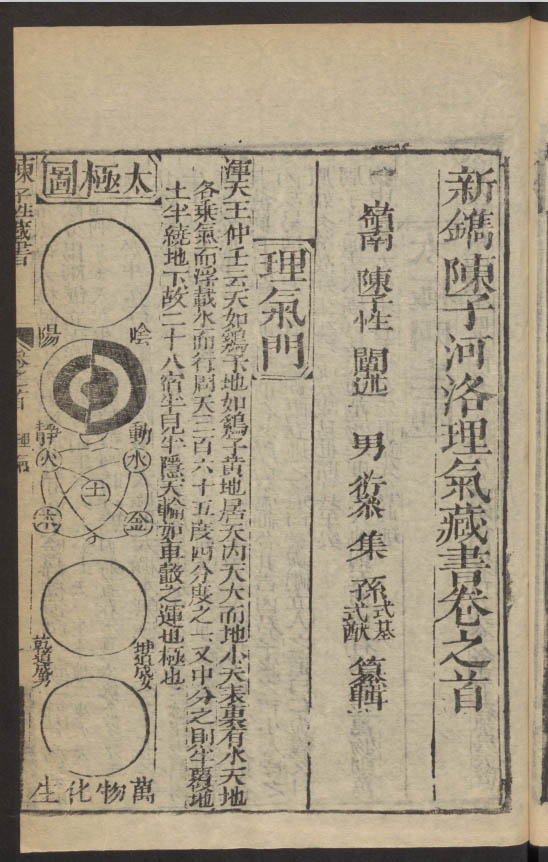 新鐫陳子河洛理氣藏書卷之首
嶺南 陳子性 闡述 男 彙集 孫 式基 式猷 纂輯
理氣門
渾天王仲壬云天如鷄子地如鷄子黄地居天内天大而地小天表裏有水天地
各乗氣而浮載水而行周天三百六十五度四分度之一又中分之則半覆地
土半繞地下故二十八宿半見半隱天輪如車轂之運也極也
太極圖
陰
陽
動
静
水
火
土
金
木
坤道成女
乾道成男
萬物化生
陳子性藏書
卷之首
理氣